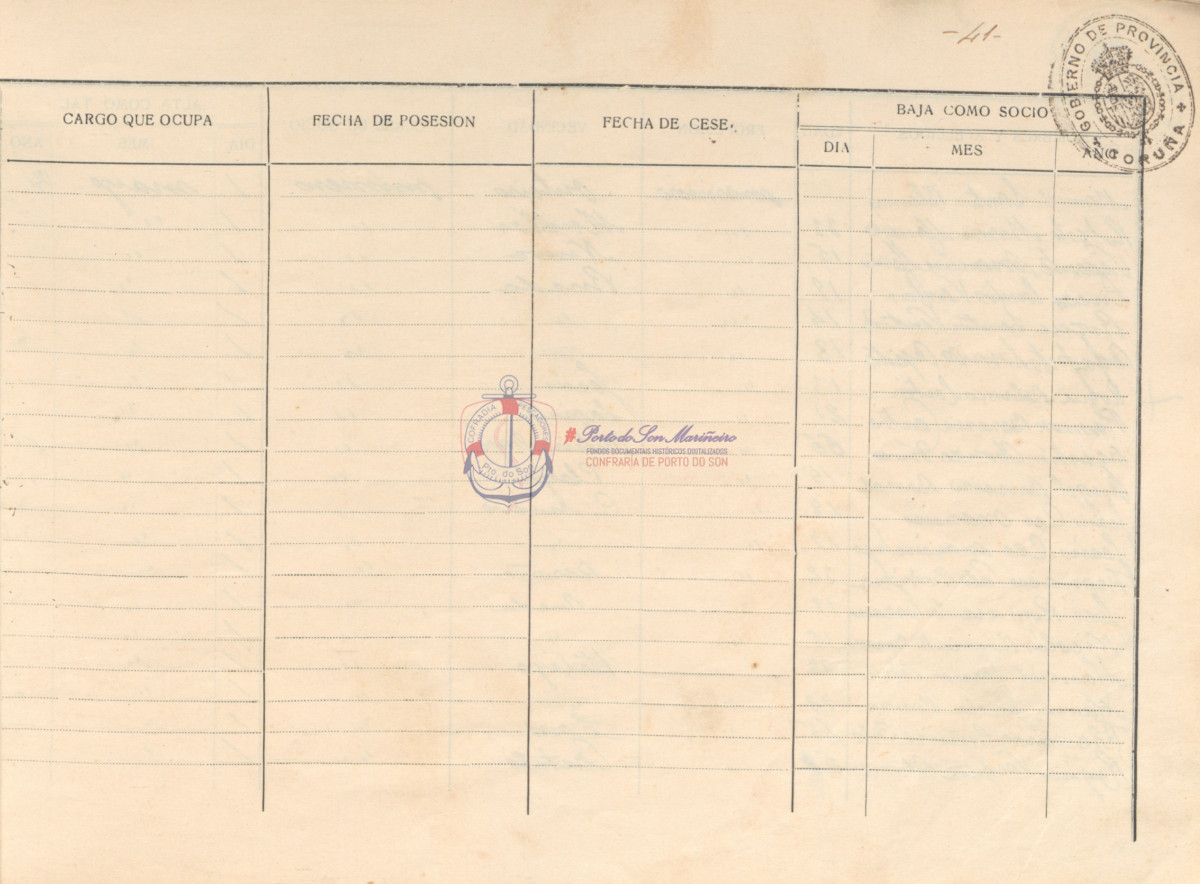 -41-
GOBIERNO DE PROVINCIA
CORUÑA
CARGO QUE OCUPA
FECHA DE POSESION
FECHA DE CESE.
BAJA COMO SOCIO
DIA
MES
AÑO
COFRADIA PESCADORES
Pto. do Son
#PortodoSon Mariñeiro
FONDOS DOCUMENTAIS HISTÓRICOS DIXITALIZADOS
CONFRARÍA DE PORTO DO SON